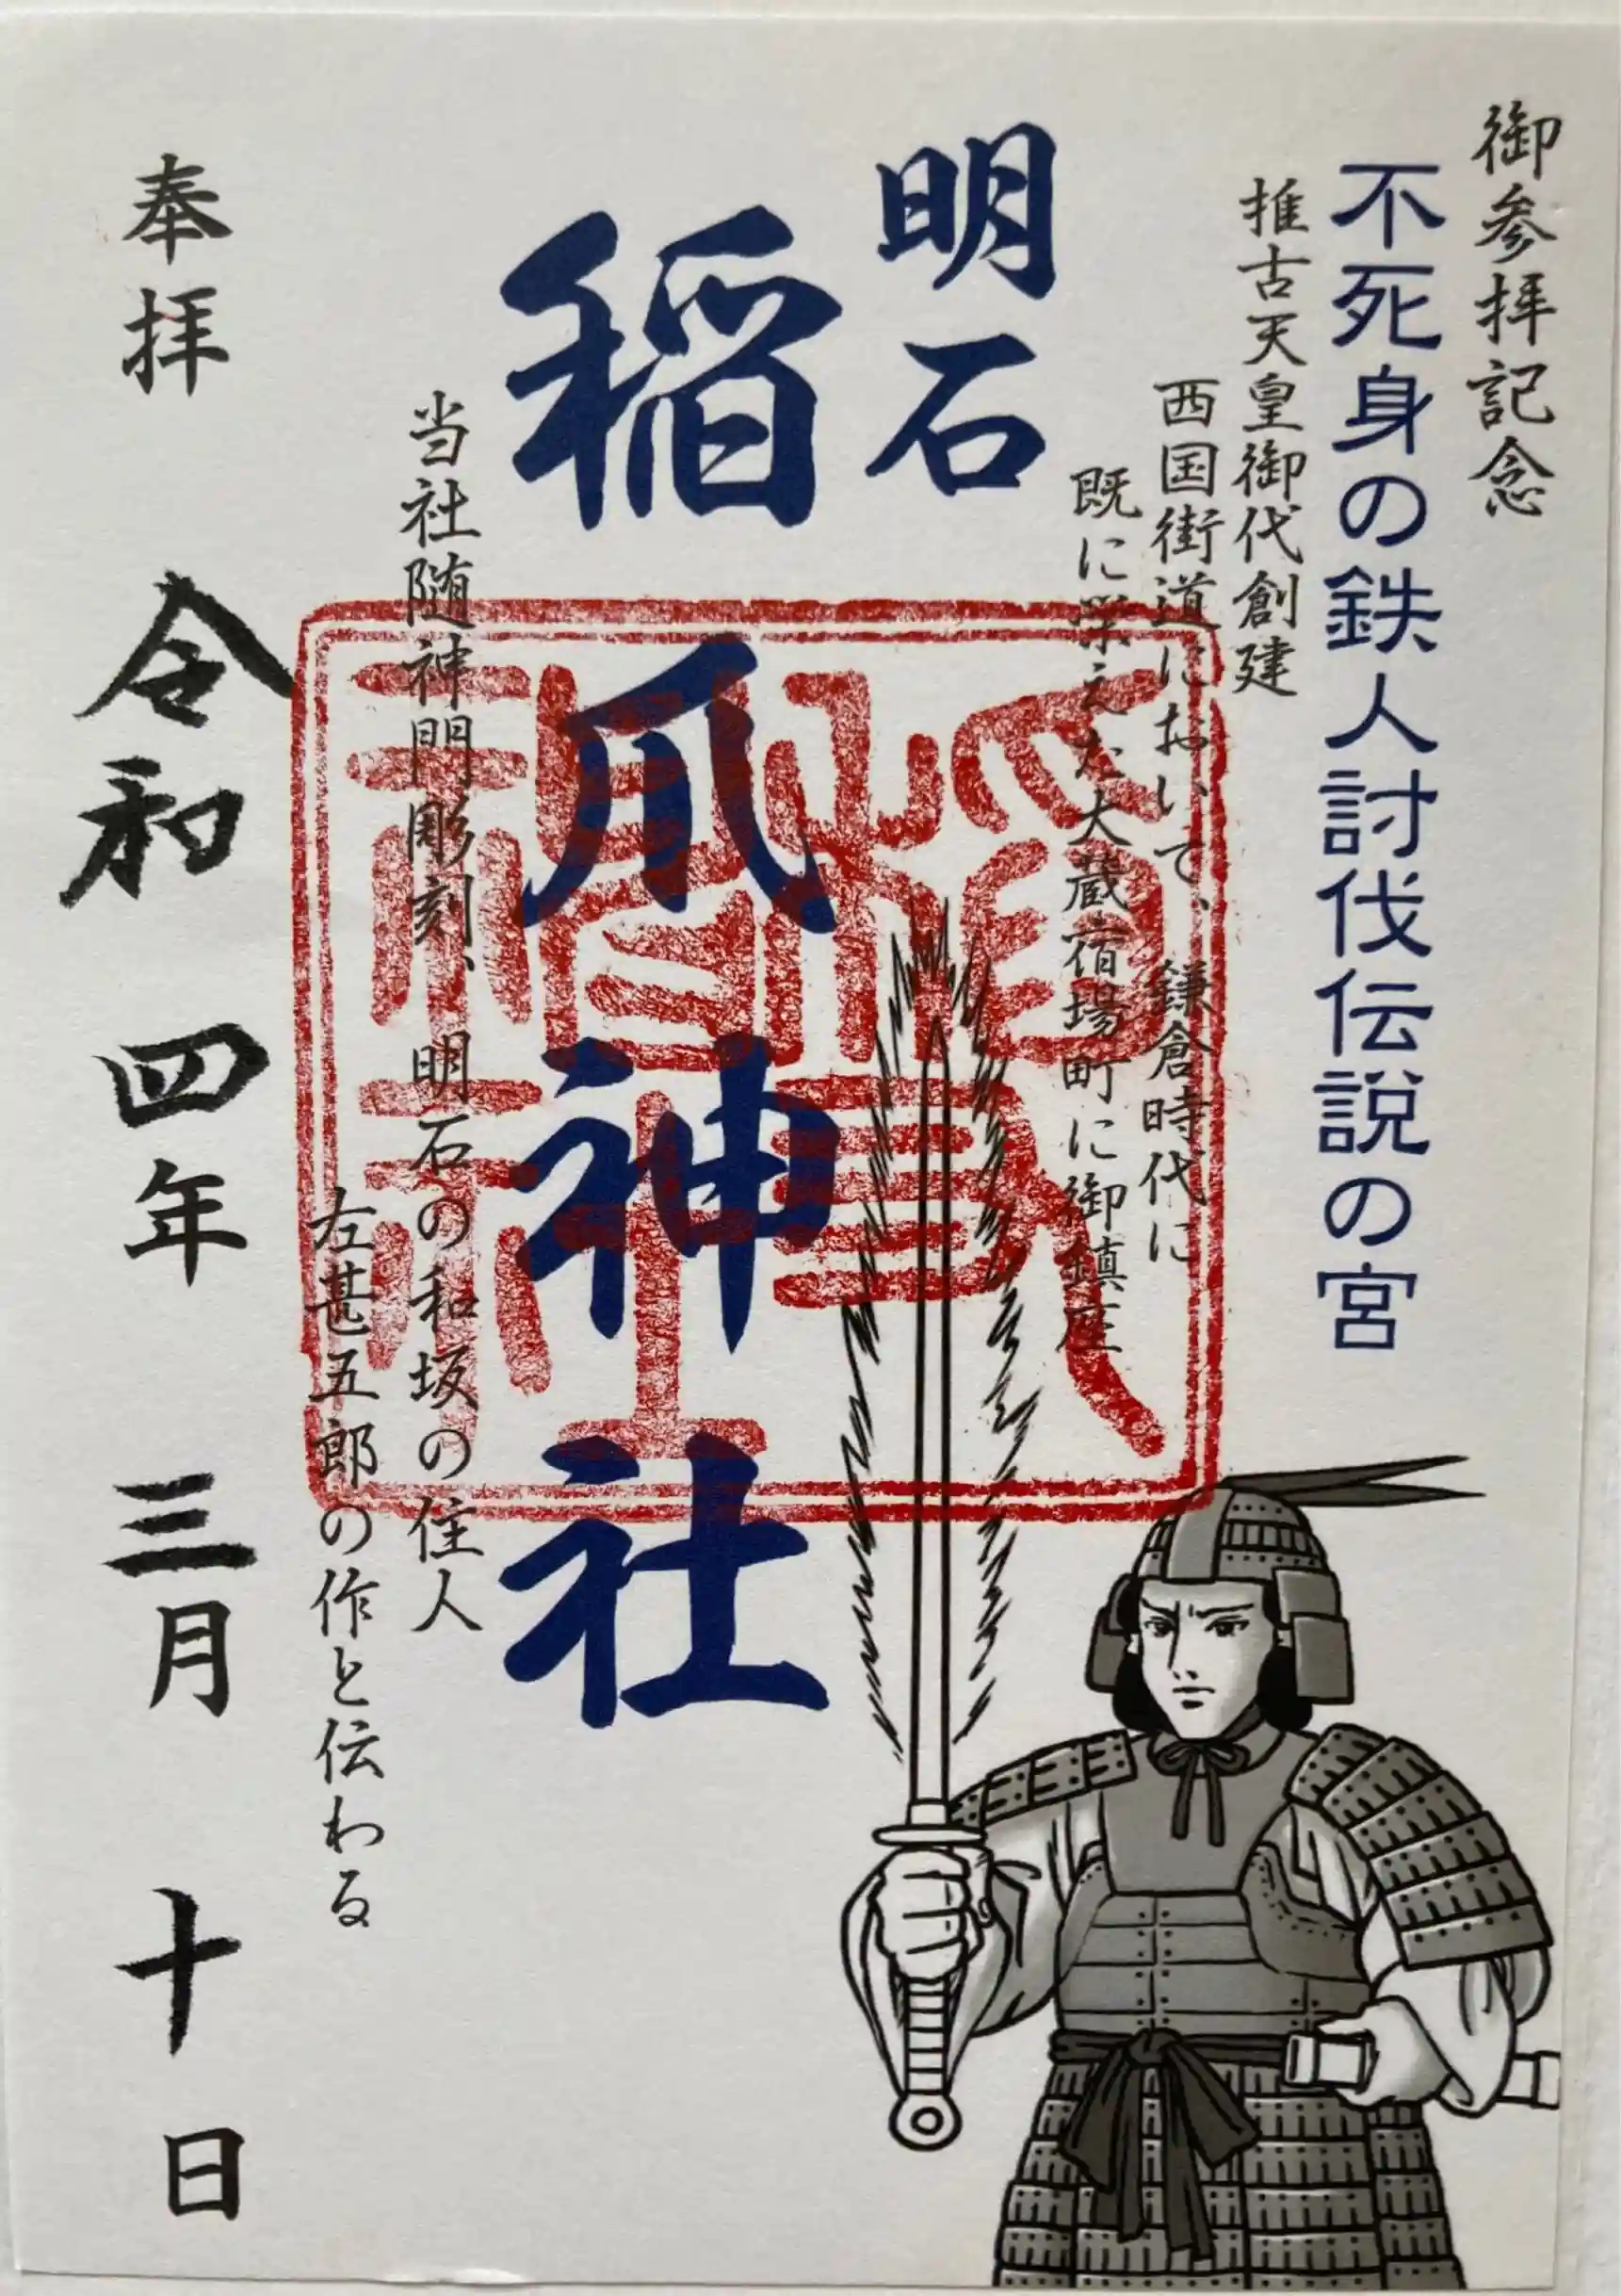 御参拝記念
不死身の鉄人討伐伝説の宮
推古天皇御代創建
西国街道において、鎌倉時代に
既に栄えた大蔵宿場町に御鎮座
明石
稲爪神社
当社随神門彫刻、明石の和坂の住人
左甚五郎の作と伝わる
奉拝 令和四年三月十日